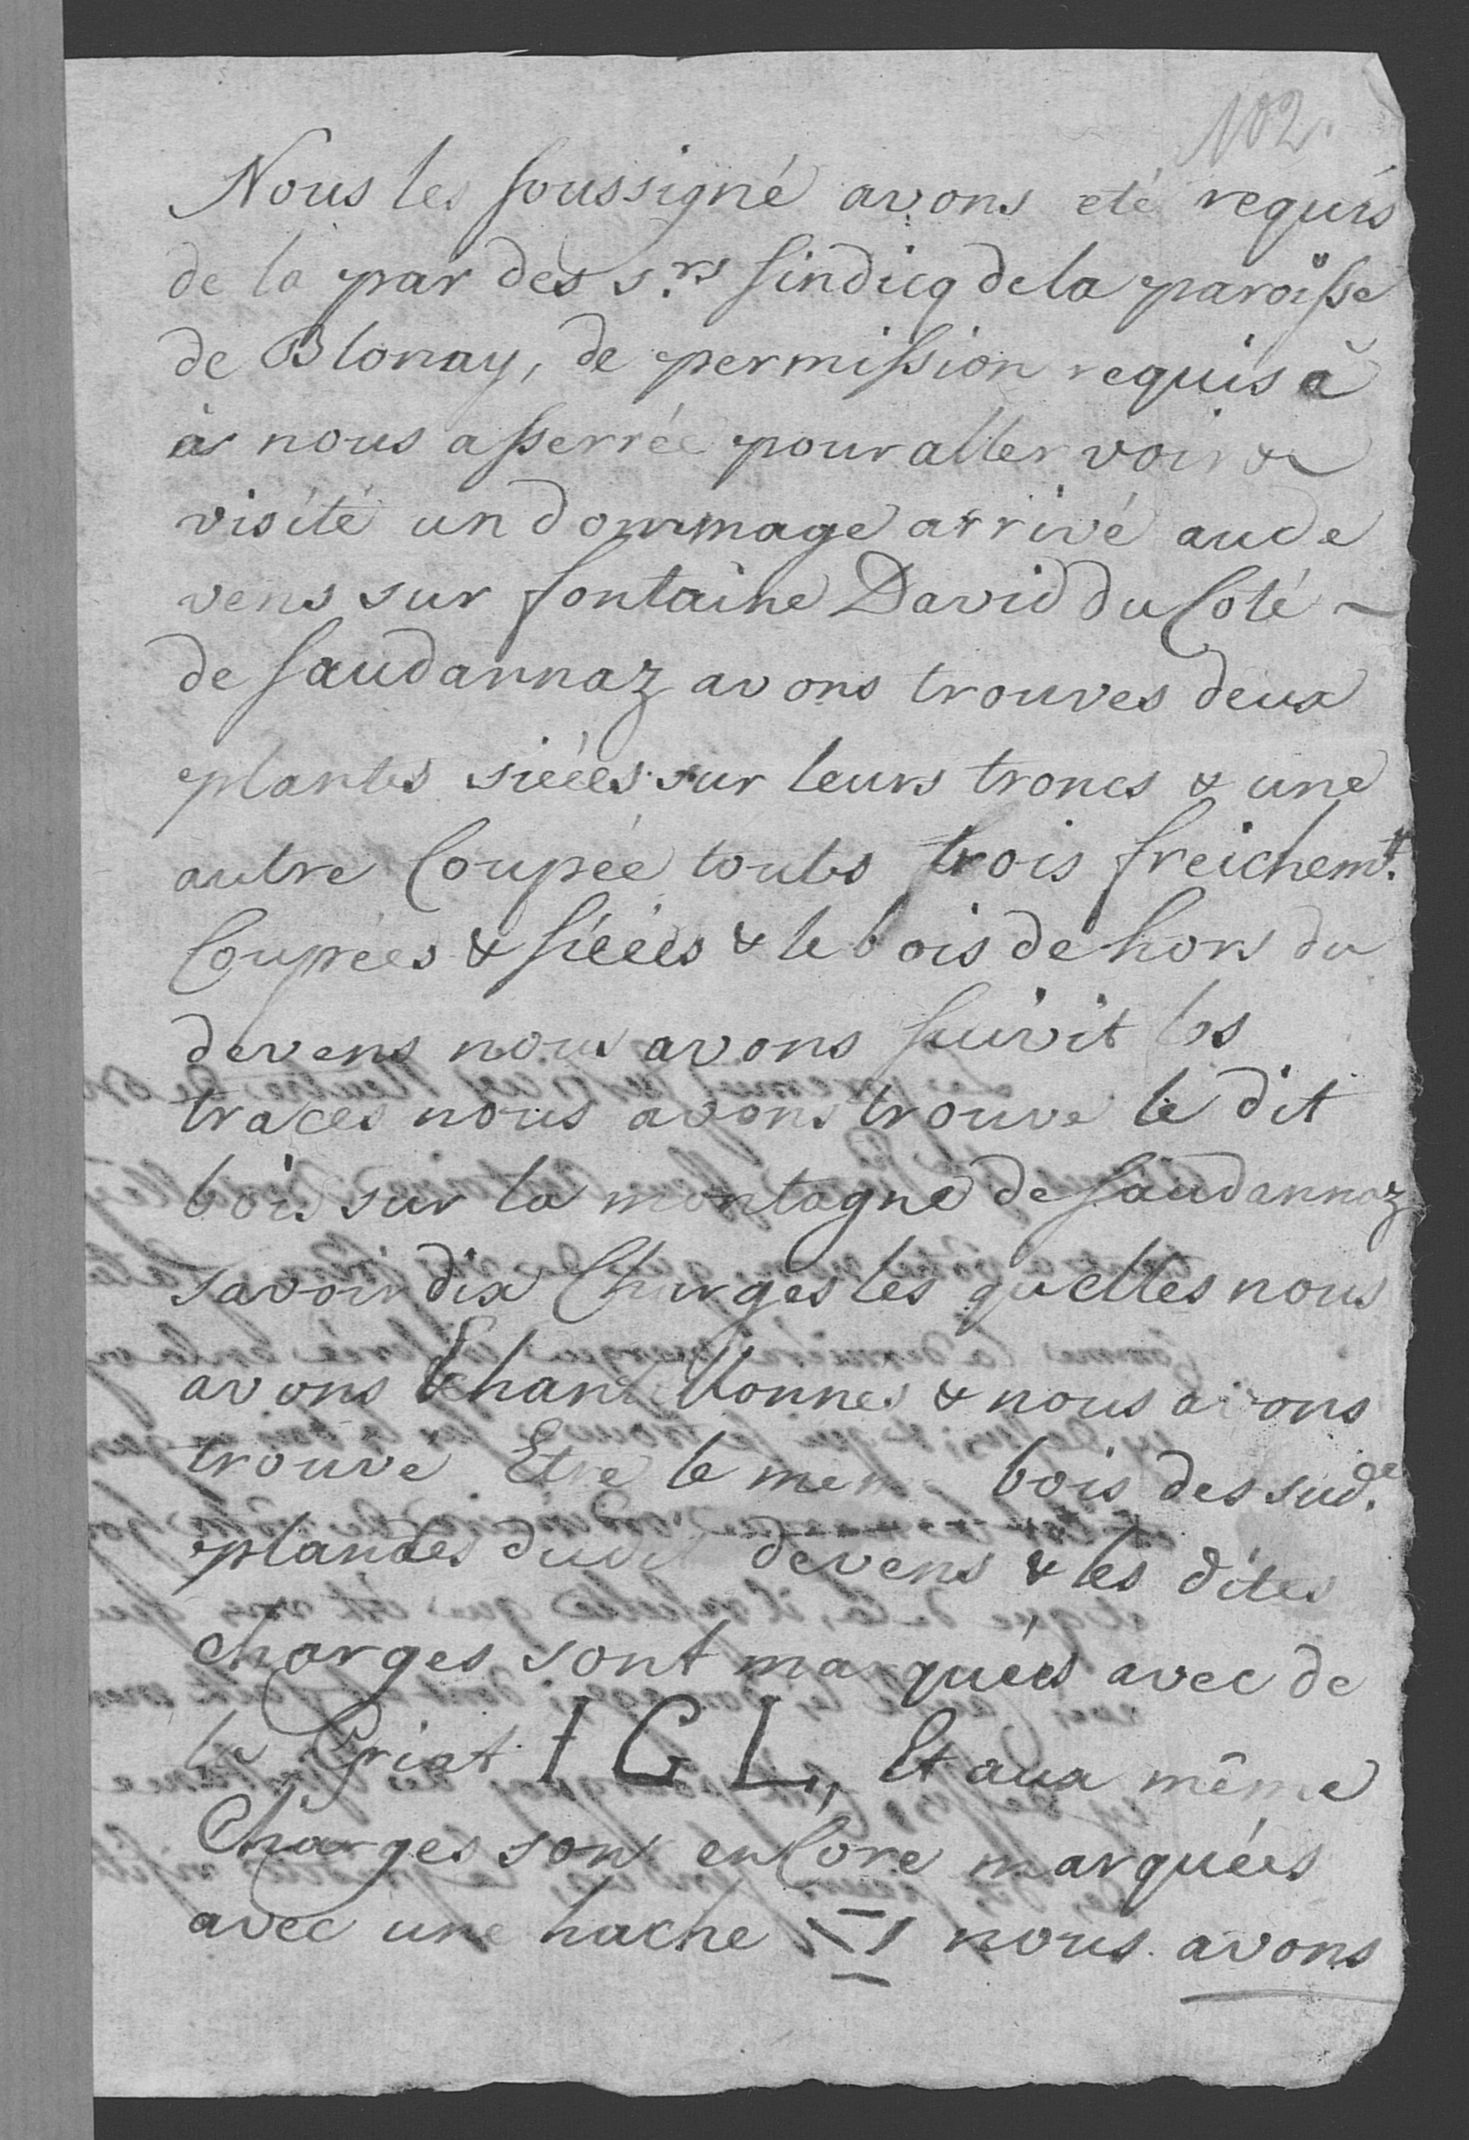 102.
Nous les soussigné avons eté requis
de la par des s.rs sindicq de la paroisse
de Blonay, de permission requis à
à nous asserrée pour aller voir &
visité un dommage arrivé aude
vens sur fontaine David du Coté
de saudannaz avons trouves deux
plantes siéées sur leurs troncs & une
autre Coupée toutes trois freichemt.
Coupées & siéées & le bois de hors du
devens nous avons suivit les
traces nous avons trouve le dit
bois sur la montagne de saudannaz
savoir dix Charges les quelles nous
avons Echantillonnes & nous avons
trouvé Etre le meme bois des sud.te
plantes dudit devens & les dites
charges sont marquées avec de
la Criat I G L,, Et aux même
Charges sont enCore marquées
avec une hache nous avons